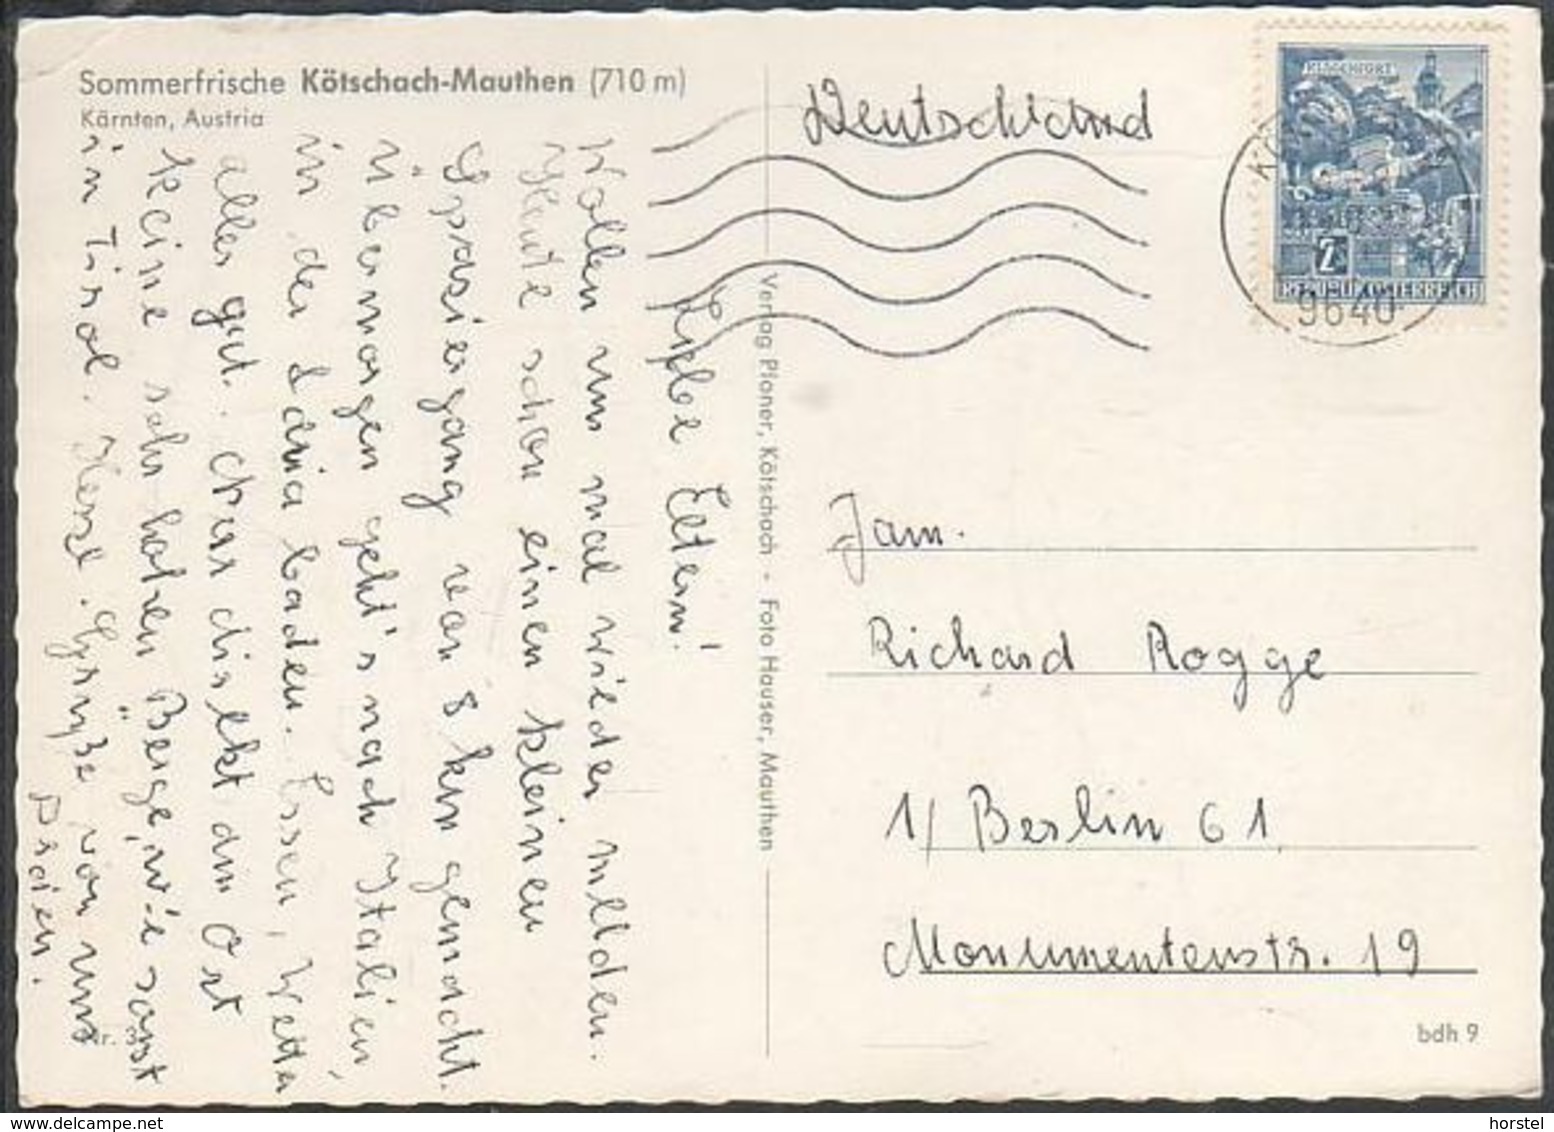 Sommerfrische Kötschach-Mauthen (710 m)
Kärnten, Austria
Liebe Eltern!
Wollen uns mal wieder melden.
Heute schon einen kleinen
Spaziergang von 8 km gemacht.
Übermorgen geht's nach Italien,
in der Adria baden. Essen, Wetter
alles gut. Nur direkt am Ort
keine sehr hohen Berge, wie sonst
in Tirol. Herzl. Grüße von uns
dreien.
Verlag Planer, Kötschach · Foto Hauser, Mauthen
Deutschland
KLAGENFURT
REPUBLIK ÖSTERREICH
9640
Fam.
Richard Rogge
1/ Berlin 61
Monumentenstr. 19
bdh 9
delcampe.net
horstel